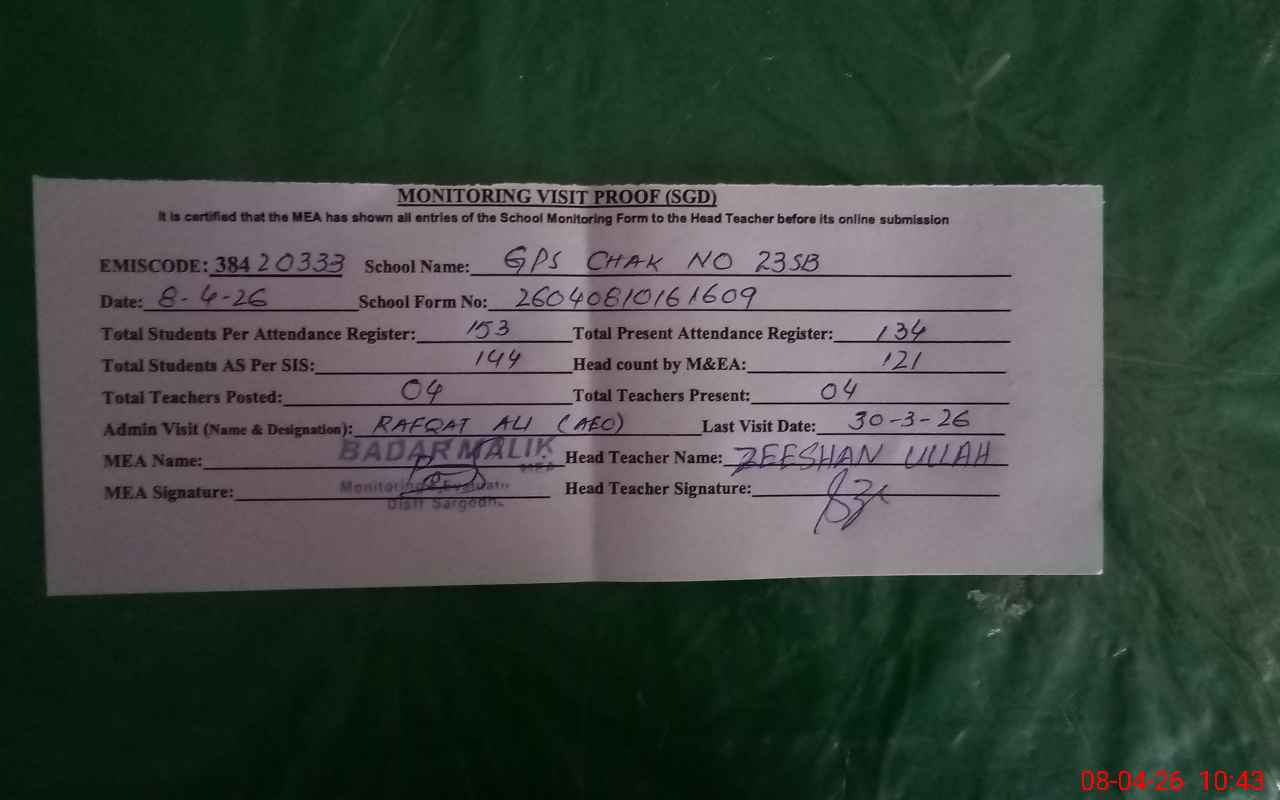 MONITORING VISIT PROOF (SGD)
It is certified that the MEA has shown all entries of the School Monitoring Form to the Head Teacher before its online submission
EMISCODE: 38420333 School Name: GPS CHAK NO 23SB
Date: 8-4-26 School Form No: 26040810161609
Total Students Per Attendance Register: 153 Total Present Attendance Register: 134
Total Students AS Per SIS: 144 Head count by M&EA: 121
Total Teachers Posted: 04 Total Teachers Present: 04
Admin Visit (Name & Designation): RAFQAT ALI (AEO) Last Visit Date: 30-3-26
MEA Name: BADAR MALIK MEA Head Teacher Name: ZEESHAN ULLAH
MEA Signature: Monitoring Head Teacher Signature:
08-04-26 10:43